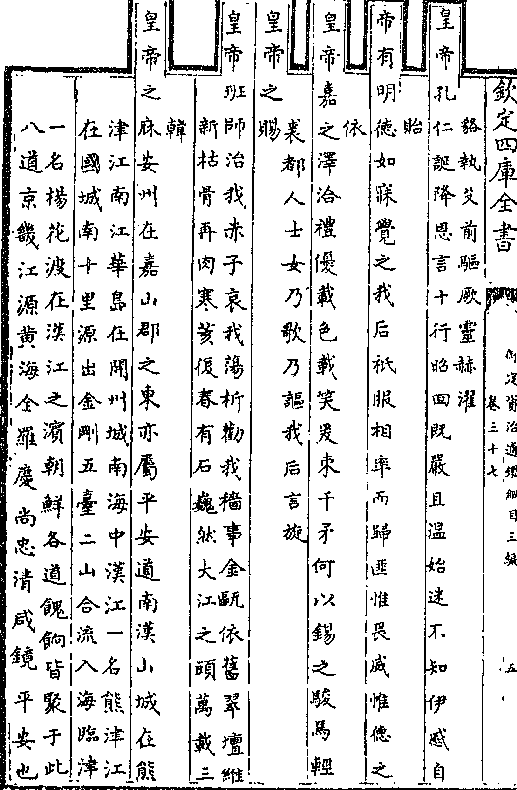 欽定四庫全書
御定資治通鑑綱目三編
卷三十七
五
貉執殳前驅厥靈赫濯
皇帝孔仁誕降恩言十行昭回既嚴且溫始迷不知伊慼自
貽
帝有明德如寐覺之我后祇服相率而歸匪惟畏威惟德之
依
皇帝嘉之澤洽禮優載色載笑爰束干矛何以錫之駿馬輕
裘都人士女乃歌乃謳我后言旋
皇帝之賜
皇帝班師治我赤子哀我蕩析勸我穡事金甌依舊翠壇維
新枯骨再肉寒荄復春有石巍然大江之頭萬載三
韓
皇帝之庥安州在嘉山郡之東亦屬平安道南漢山城在熊
津江南江華島在開州城南海中漢江一名熊津江
在國城南十里源出金剛五臺二山合流入海臨津
一名楊花渡在漢江之濱朝鮮各道餽餉皆聚于此
八道京畿江源黄海全羅慶尚忠清咸鏡平安也